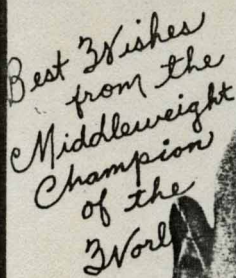 Best Wishes
from the
Middleweight
Champion
of the
Worl